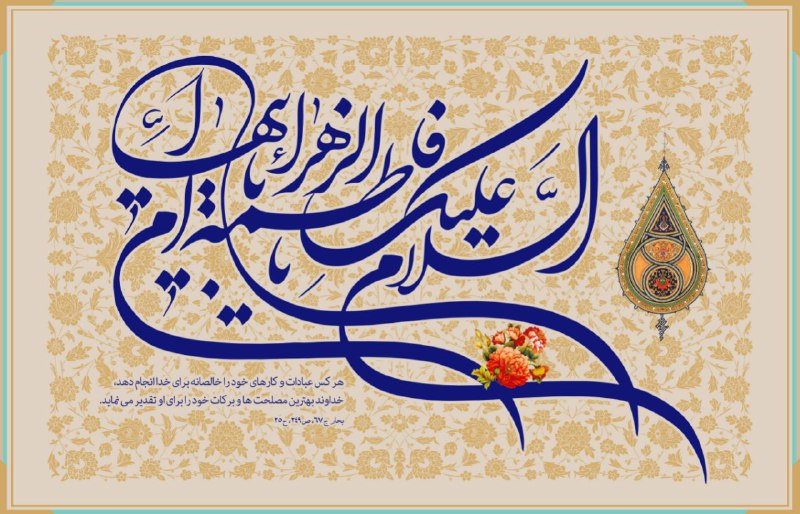 السلام علیک یا فاطمة الزهراء یا ام ابیها
هر کس عبادات و کارهای خود را خالصانه برای خدا انجام دهد،
خداوند بهترین مصلحت ها و برکات خود را برای او تقدیر می نماید.
بحار، ج۶۷، ص۲۴۹، ح۲۵